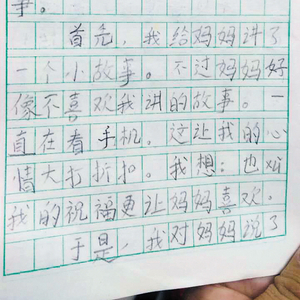 首先，我给妈妈讲了
一个小故事。不过妈妈好
像不喜欢我讲的故事。一
直在看手机。这让我的心
情大打折扣。我想：也
我的祝福更让妈妈喜欢。
于是，我对妈妈说了